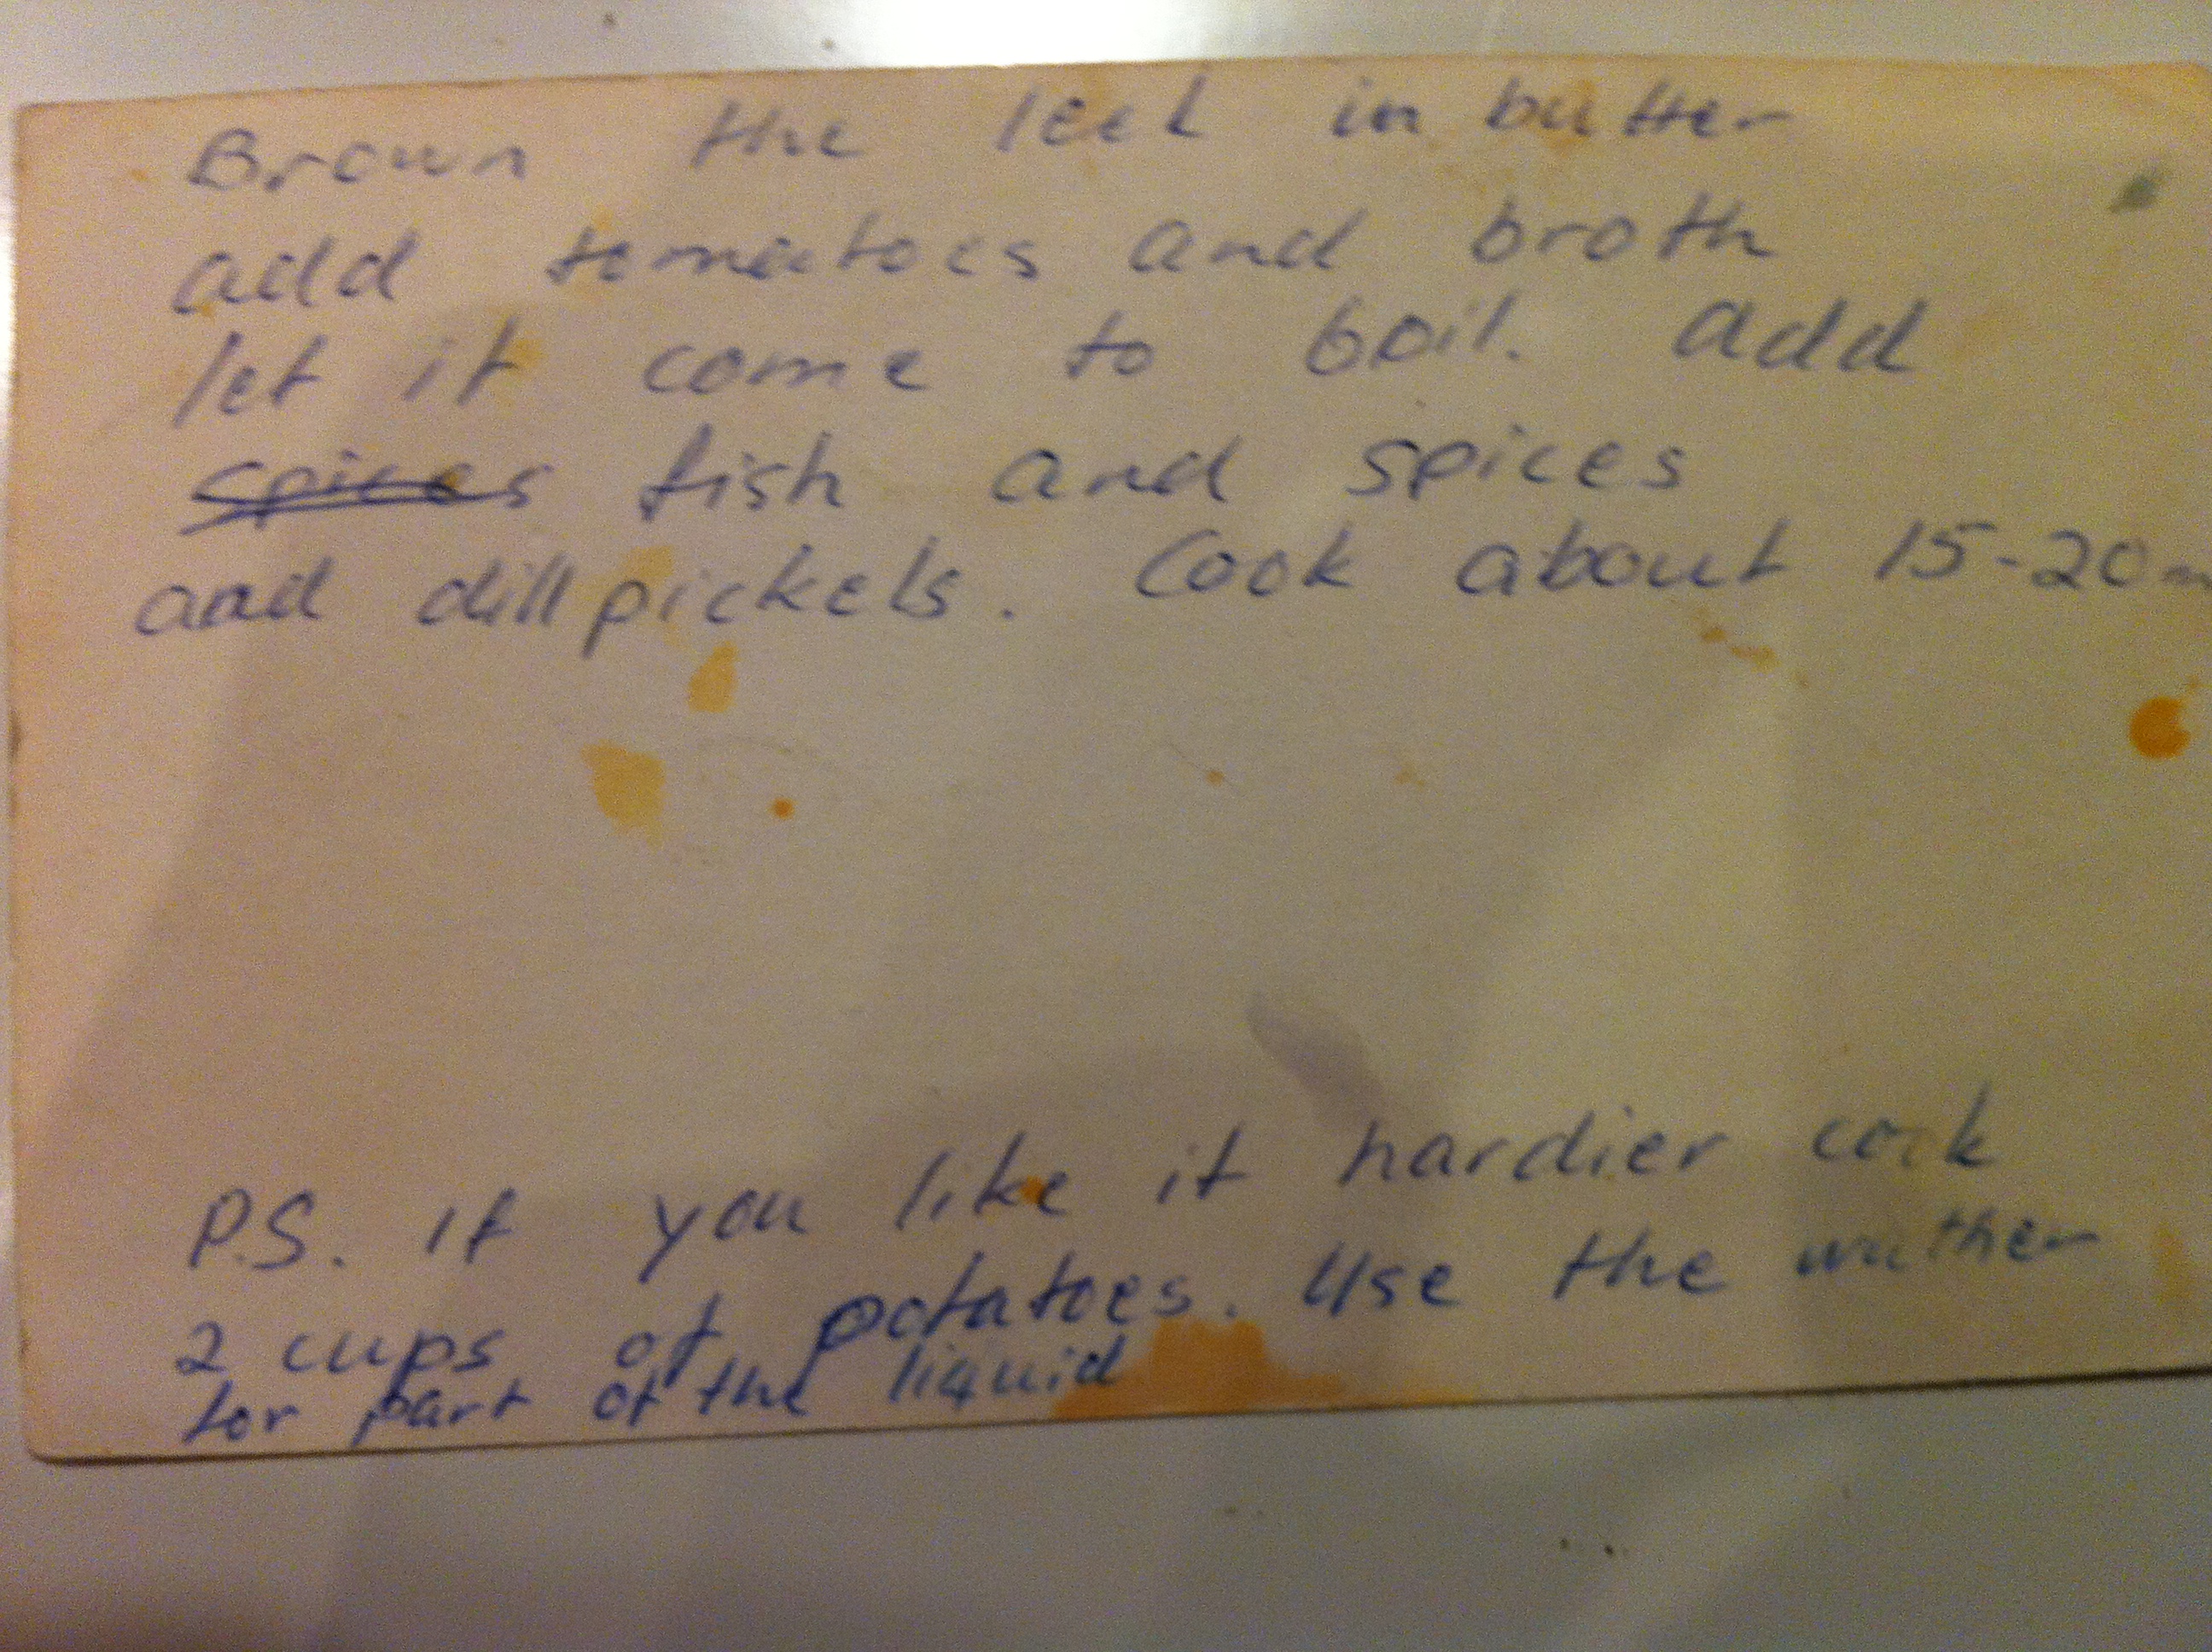 Brown the leek in butter
add tomatoes and broth
let it come to boil. Add
spices fish and spices
and dill pickels. Cook about 15-20 m
P.S. If you like it hardier cook
2 cups of potatoes. Use the wather
for part of the liquid